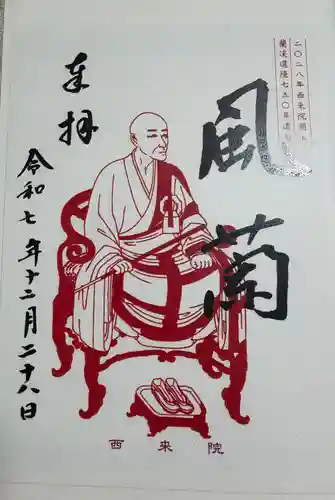 二〇二八年西来院開山
蘭渓道隆七五〇年遠忌
風蘭
奉拝
令和七年十二月二十八日
西来院